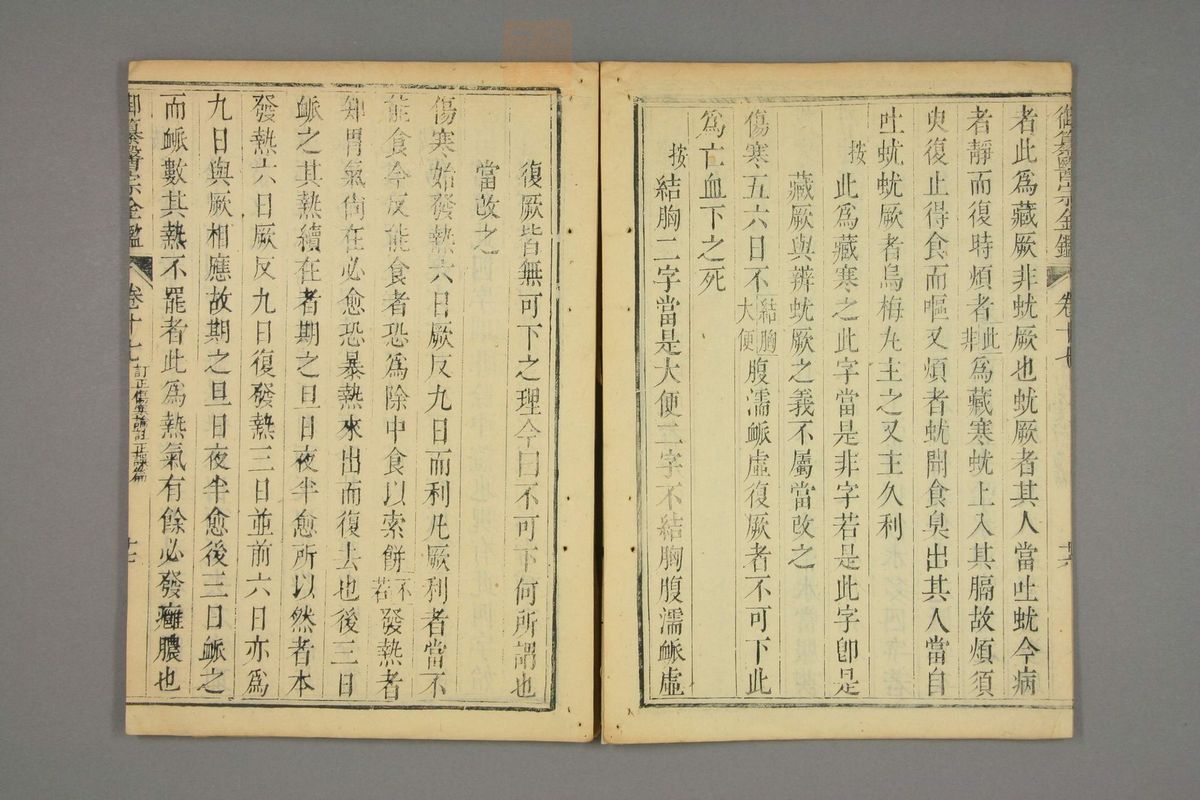 御纂醫宗金鑑 卷十七
者此爲藏厥非蚘厥也蚘厥者其人當吐蚘今病
者靜而復時煩者此非爲藏寒蚘上入其膈故煩須
臾復止得食而嘔又煩者蚘聞食臭出其人當自
吐蚘蚘厥者烏梅丸主之又主久利
按此爲藏寒之此字當是非字若是此字卽是
藏厥與辨蚘厥之義不屬當改之
傷寒五六日不結胸大便腹濡脈虛復厥者不可下此
爲亡血下之死
按結胸二字當是大便二字不結胸腹濡脈虛
復厥皆無可下之理今曰不可下何所謂也
當改之
傷寒始發熱六日厥反九日而利凡厥利者當不
能食今反能食者恐爲除中食以索餅不若發熱者
知胃氣尙在必愈恐暴熱來出而復去也後三日
脈之其熱續在者期之旦日夜半愈所以然者本
發熱六日厥反九日復發熱三日並前六日亦爲
九日與厥相應故期之旦日夜半愈後三日脈之
而脈數其熱不罷者此爲熱氣有餘必發癰膿也
御纂醫宗金鑑 卷十七 訂正傷寒論註正誤篇